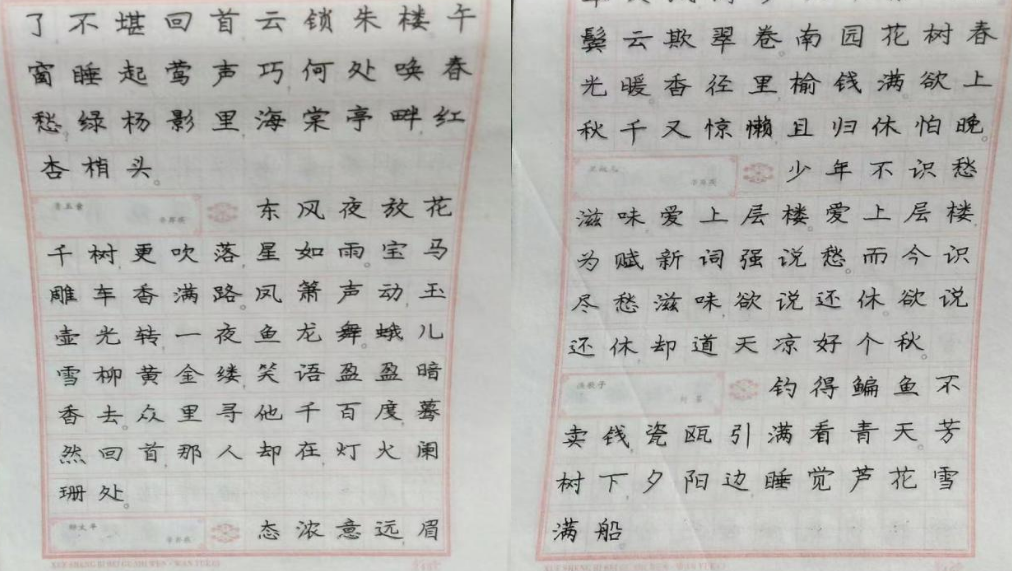 了不堪回首云锁朱楼午
窗睡起莺声巧何处唤春
愁绿杨影里海棠亭畔红
杏梢头。
青玉案
辛弃疾
东风夜放花
千树更吹落星如雨。宝马
雕车香满路。凤箫声动玉
壶光转一夜鱼龙舞。蛾儿
雪柳黄金缕笑语盈盈暗
香去。众里寻他千百度蓦
然回首那人却在灯火阑
珊处。
态浓意远眉
鬓云欺翠卷。南园花树春
光暖香径里榆钱满欲上
秋千又惊懒且归休怕晚。
少年不识愁
滋味爱上层楼爱上层楼
为赋新词强说愁。而今识
尽愁滋味欲说还休。欲说
还休却道天凉好个秋。
渔歌子
钓得鳊鱼不
卖钱瓷瓯引满看青天。芳
树下夕阳边睡觉芦花雪
满船